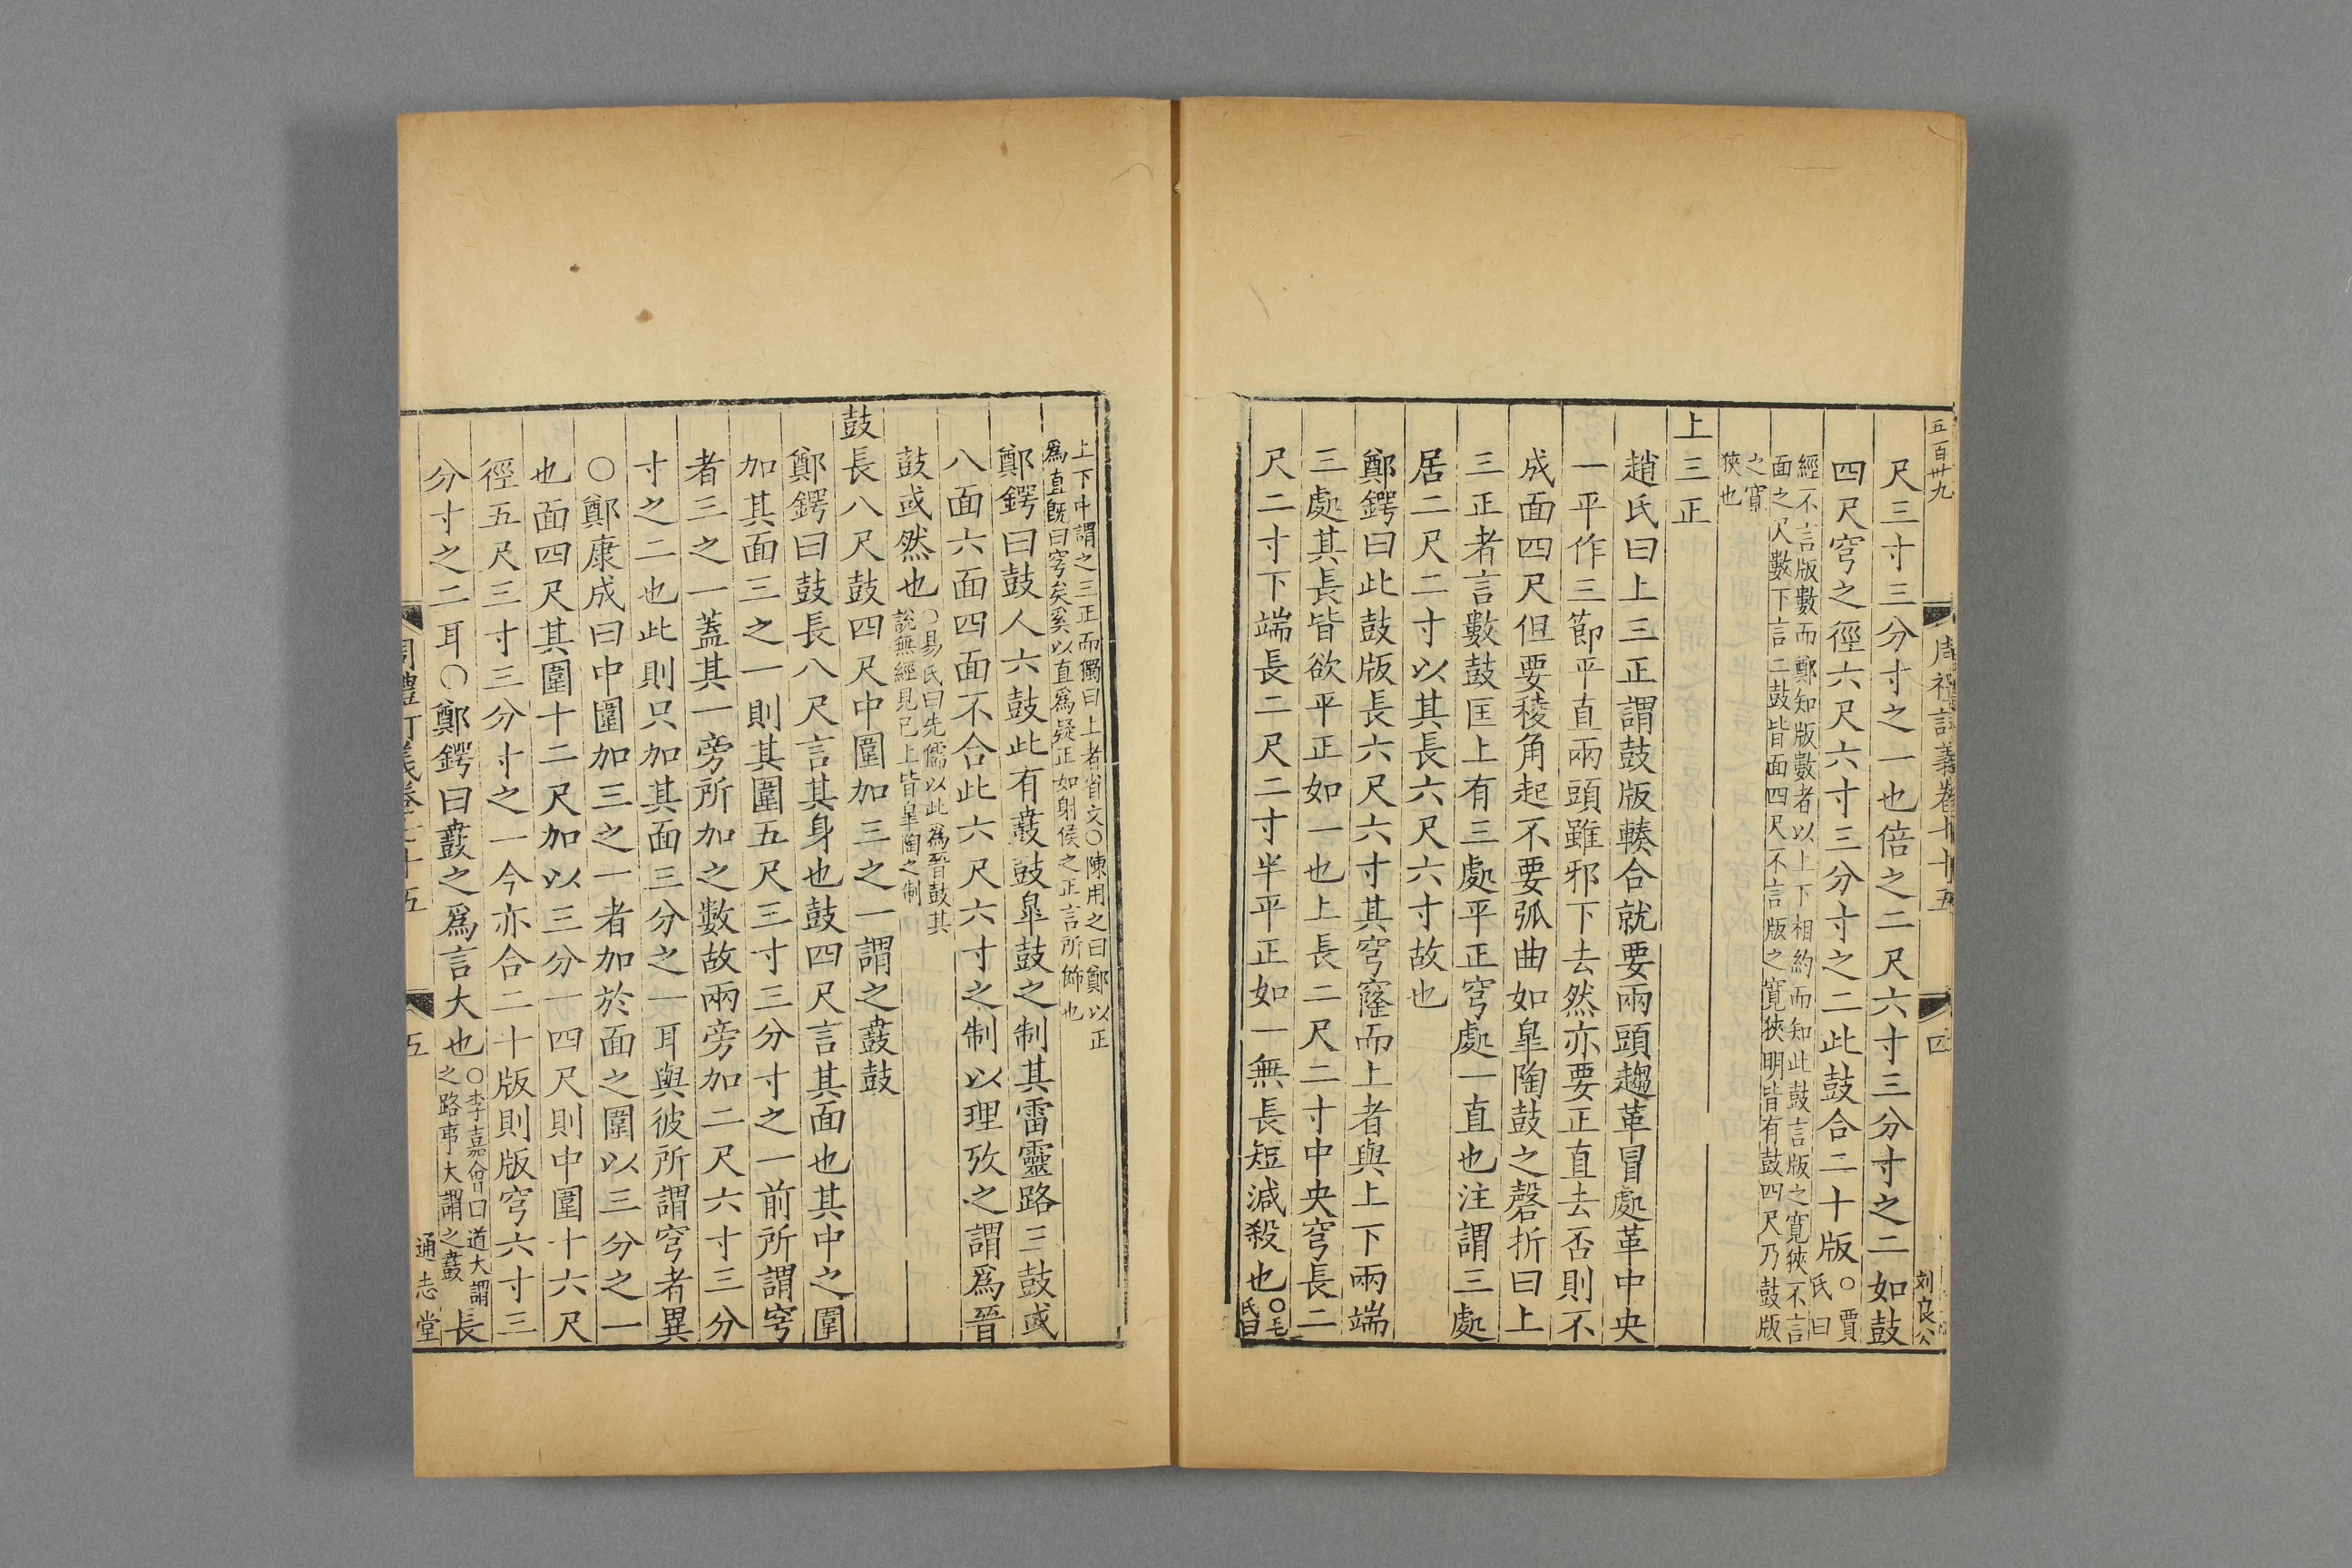 五百卅九
周禮訂義卷七十五
四
刘良公
尺三寸三分寸之一也倍之二尺六寸三分寸之二如鼓
四尺穹之徑六尺六寸三分寸之二此鼓合二十版○賈氏曰
經不言版數而鄭知版數者以上下相約而知此鼓言版之寬狹不言
面之尺數下言二鼓皆面四尺不言版之寬狹明皆有鼓四尺乃鼓版
之寬
狹也
上三正
趙氏曰上三正謂鼓版輳合就要兩頭趨革冒處革中央
一平作三節平直兩頭雖邪下去然亦要正直去否則不
成面四尺但要稜角起不要弧曲如臯陶鼓之磬折曰上
三正者言數鼓匡上有三處平正穹處一直也注謂三處
居二尺二寸以其長六尺六寸故也
鄭鍔曰此鼓版長六尺六寸其穹窿而上者與上下兩端
三處其長皆欲平正如一也上長二尺二寸中央穹長二
尺二寸下端長二尺二寸半平正如一無長短減殺也○毛氏曰
上下中謂之三正而獨曰上者省文○陳用之曰鄭以正
爲直旣曰穹矣奚以直爲疑正如射侯之正言所飾也
鄭鍔曰鼓人六鼓此有鼖鼓臯鼓之制其雷靈路三鼓或
八面六面四面不合此六尺六寸之制以理攷之謂爲晉
鼓或然也○易氏曰先儒以此爲晉鼓其
說無經見已上皆臯陶之制
鼓長八尺鼓四尺中圍加三之一謂之鼖鼓
鄭鍔曰鼓長八尺言其身也鼓四尺言其面也其中之圍
加其面三之一則其圍五尺三寸三分寸之一前所謂穹
者三之一蓋其一旁所加之數故兩旁加二尺六寸三分
寸之二也此則只加其面三分之一耳與彼所謂穹者異
○鄭康成曰中圍加三之一者加於面之圍以三分之一
也面四尺其圍十二尺加以三分一四尺則中圍十六尺
徑五尺三寸三分寸之一今亦合二十版則版穹六寸三
分寸之二耳○鄭鍔曰鼖之爲言大也○李嘉會曰道大謂
之路事大謂之鼖
長
周禮訂義卷七十五
五
通志堂